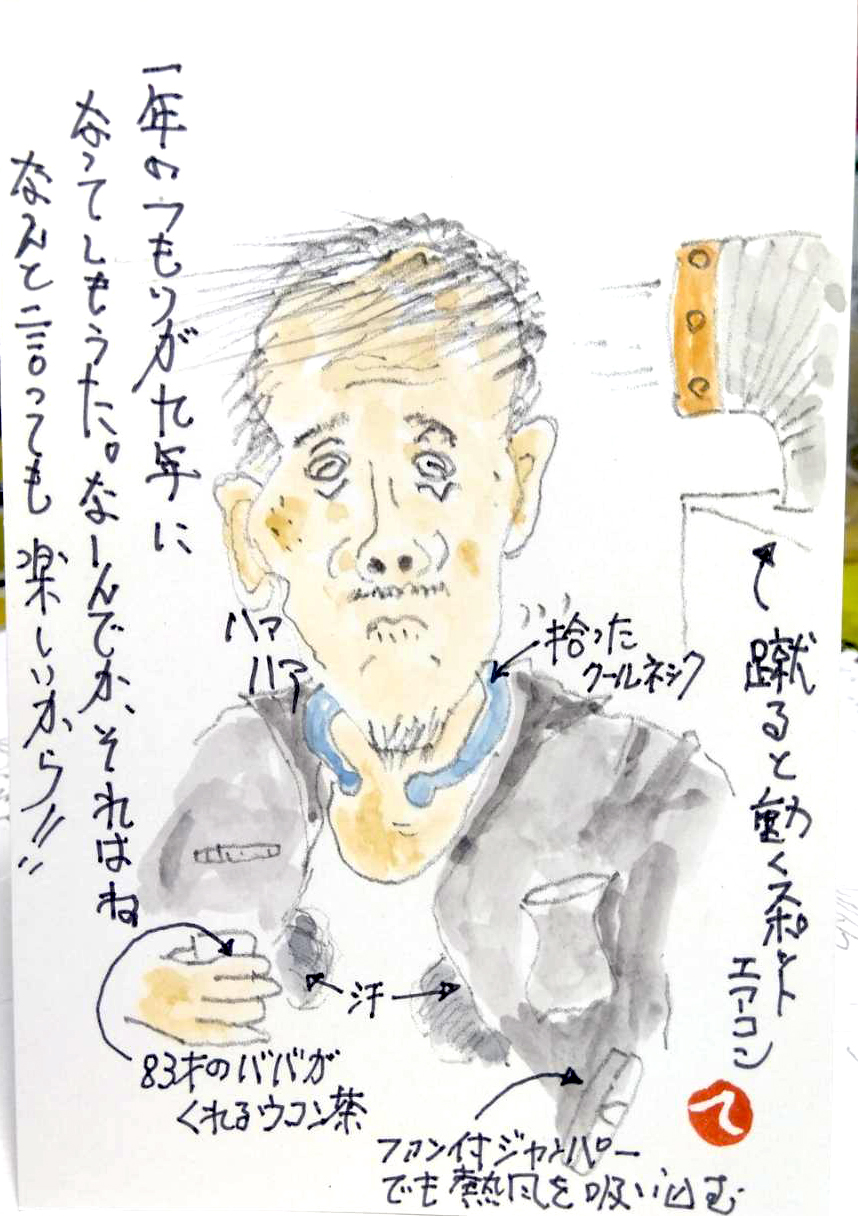 一年のつもりが九年に
なってしもうた。なーんでか、それはね
なんと言っても楽しいから!!
ハア
ハア
拾った
クールネック
蹴ると動くスポット
エアコン
汗
83才のババが
くれるウコン茶
ファン付ジャンパー
でも熱風を吸い込む
て